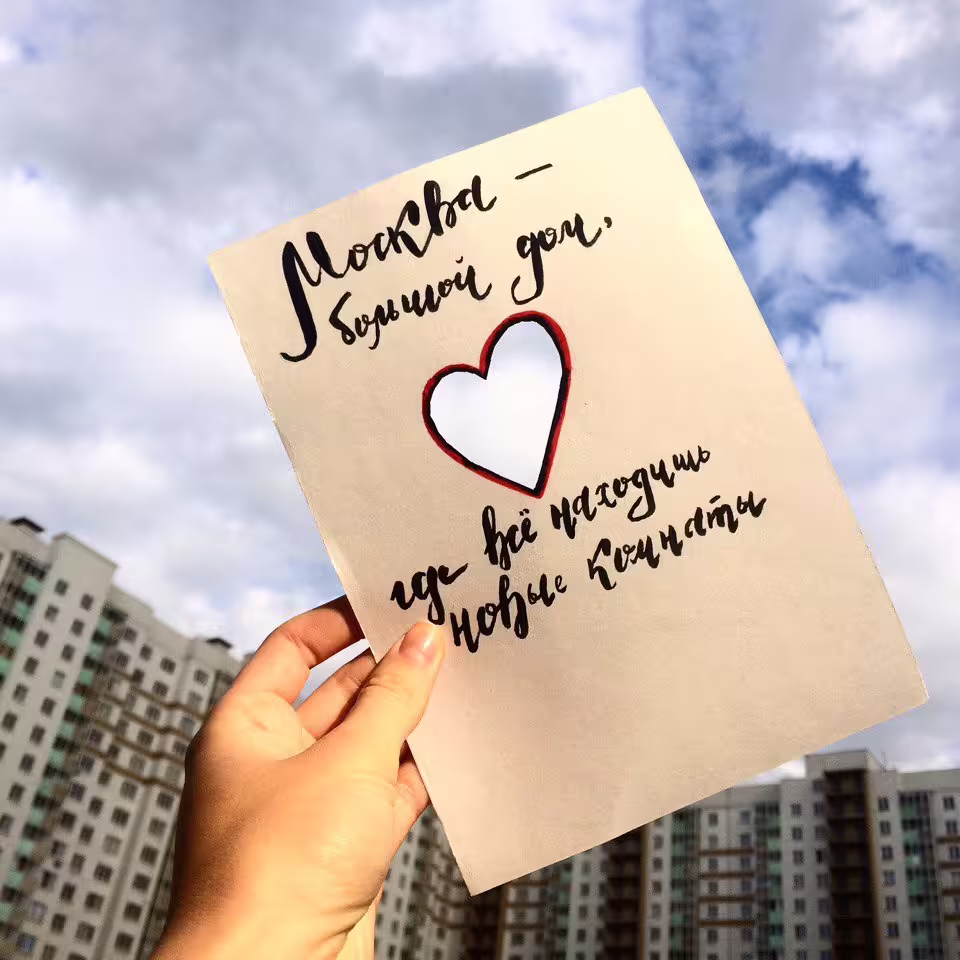 Москва –
большой дом,
где всё находишь
новые комнаты